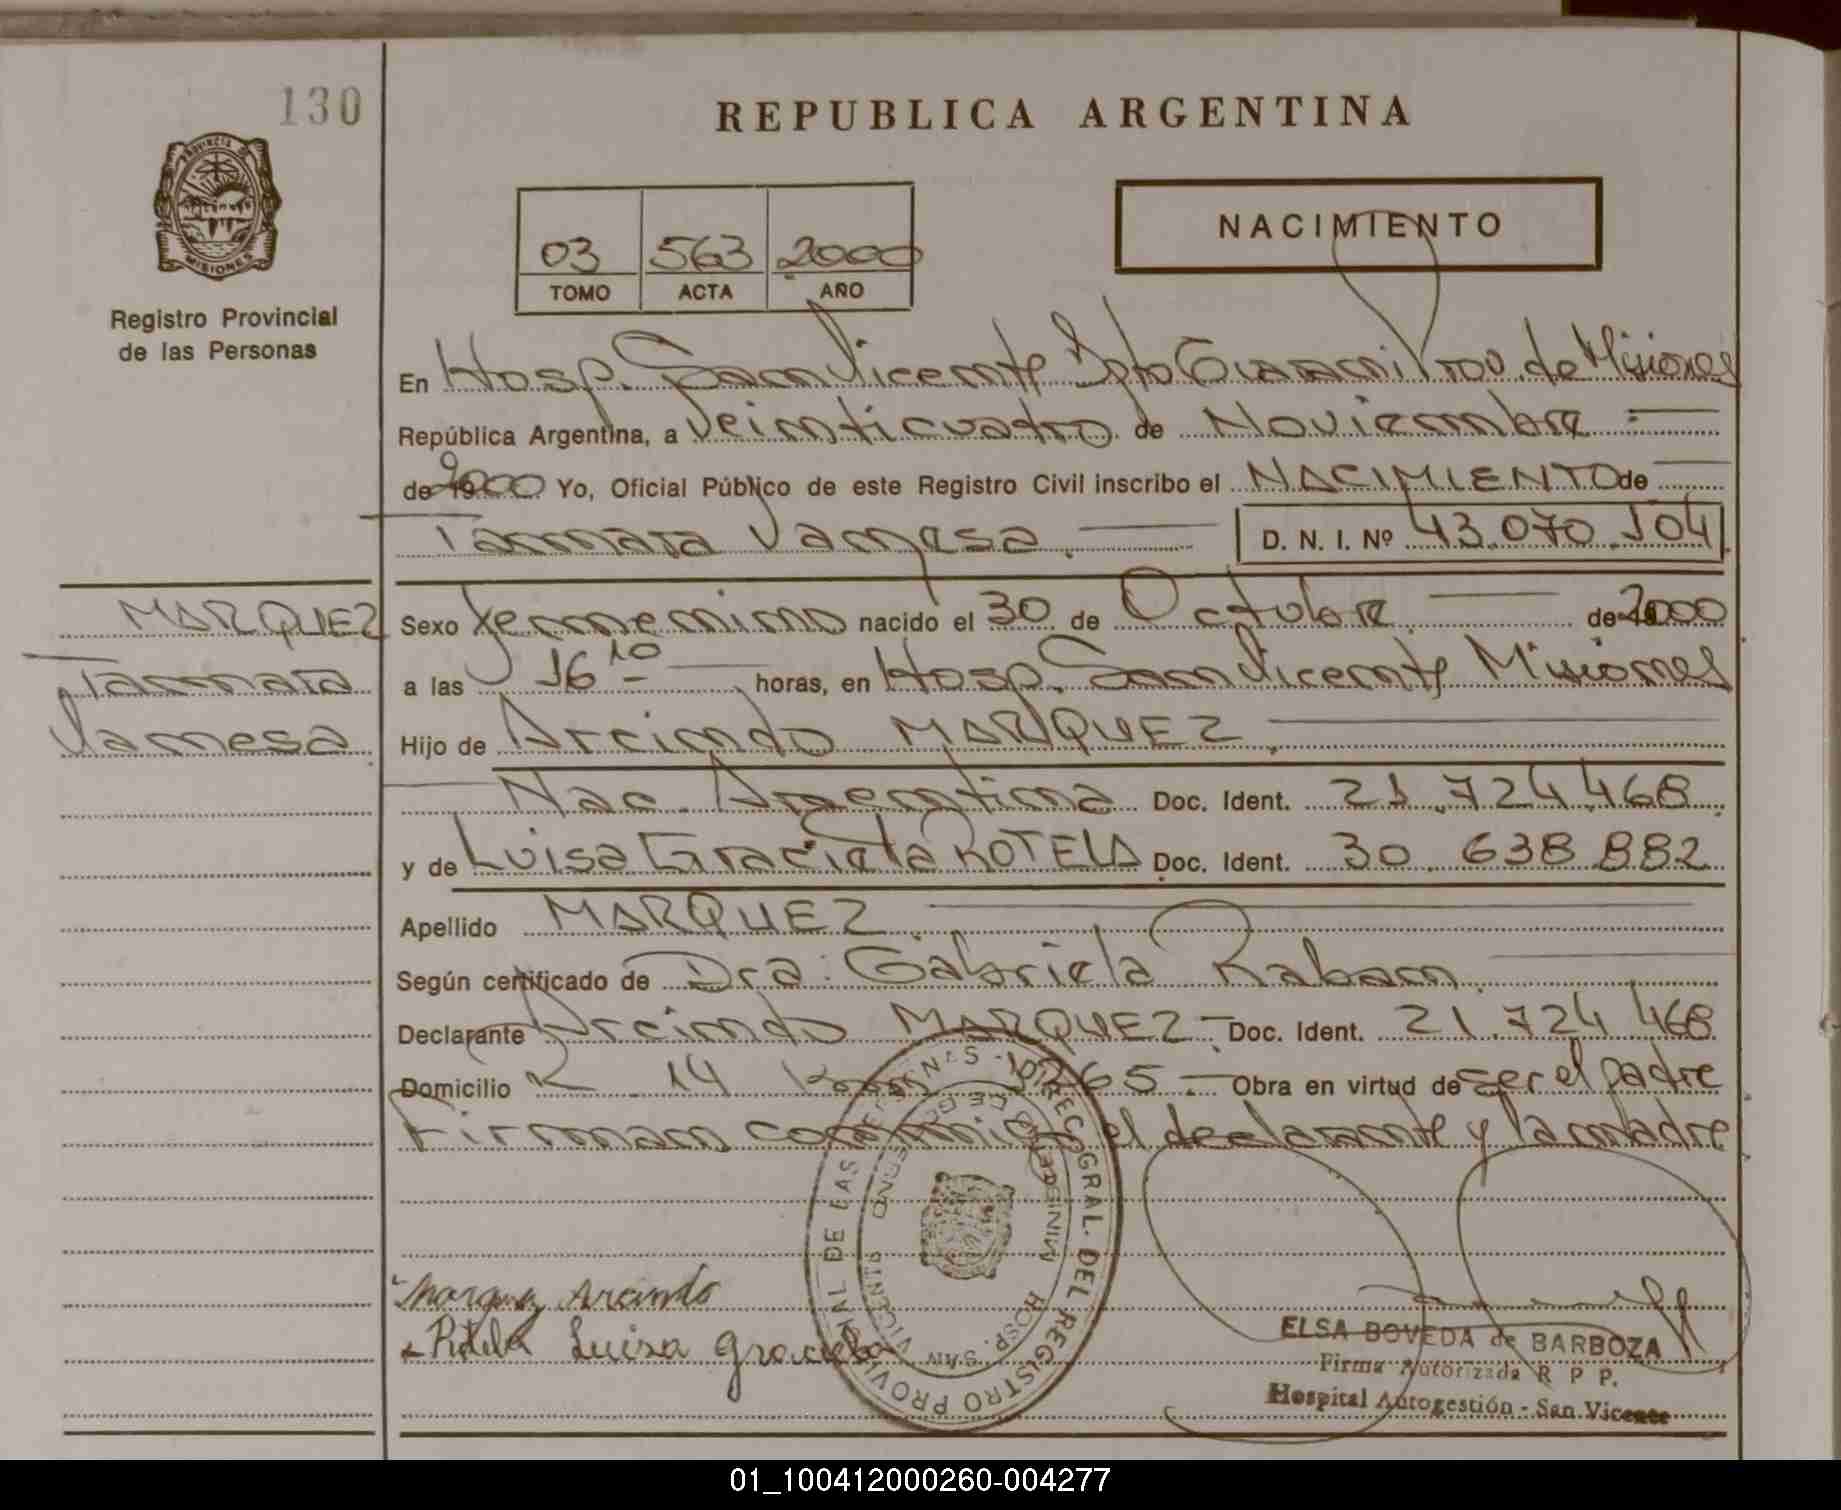 130
REPUBLICA ARGENTINA
PROVINCIA DE
MISIONES
Registro Provincial
de las Personas
03 563 2000
TOMO ACTA AÑO
NACIMIENTO
En Hosp. San Vicente Dpto Guarani Prov. de Misiones
República Argentina, a veinticuatro de Noviembre
de 2000 Yo, Oficial Público de este Registro Civil inscribo el NACIMIENTO de
Tammara Vanesa. D. N. I. Nº 43.070.504
MARQUEZ
Tammara
Vanesa
Sexo femenino nacido el 30 de Octubre de 2000
a las 16 10 horas, en Hosp. San Vicente Misiones
Hijo de Arcindo MARQUEZ.
Nac. Argentina Doc. Ident. 21.724.468
y de Luisa Graciela ROTELA Doc. Ident. 30.638.882
Apellido MARQUEZ.
Según certificado de Dra. Gabriela Raban.
Declarante Arcindo MARQUEZ.- Doc. Ident. 21.724.468
Domicilio R 14 Km 1265.- Obra en virtud de ser el padre
Firman conmigo el declarante y la madre
Marquez Arcindo
Rotela Luisa graciela
DIREC. GRAL. DEL REGISTRO PROVINCIAL DE LAS PERSONAS
MINISTERIO DE GOBIERNO
HOSP. SAN VICENTE
ELSA BOVEDA de BARBOZA
Firma Autorizada R P P.
Hospital Autogestión - San Vicente
01_100412000260-004277